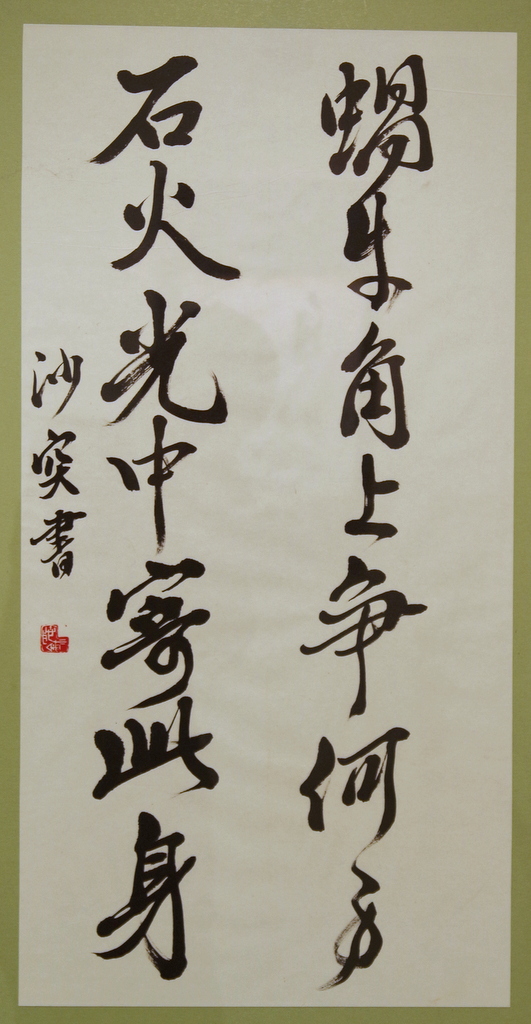 蝸牛角上争何事
石火光中寄此身
沙突書